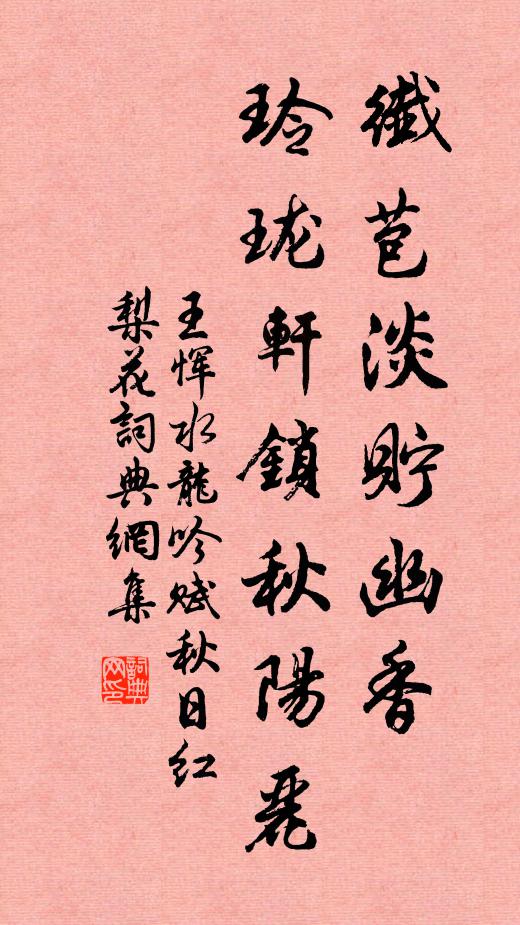 纎苞淡貯幽香
玲珑軒鎖秋陽麗
王恽水龍吟赋秋日红
梨花詞典網集
詞典网印